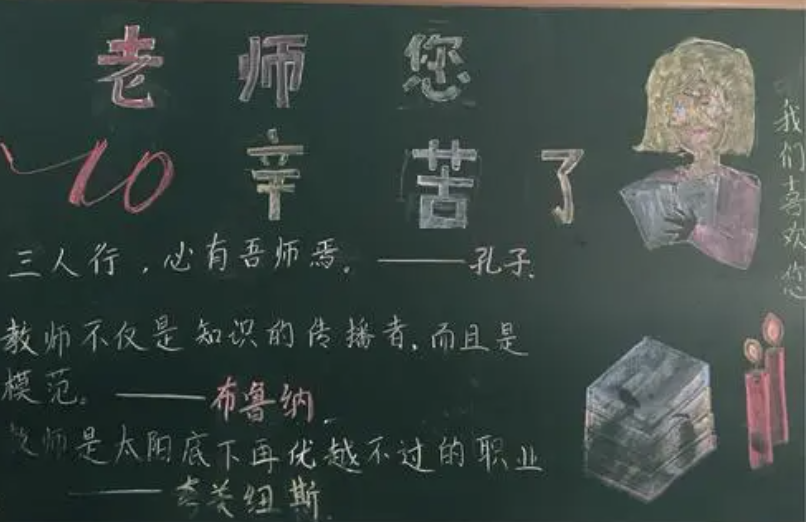 老师您
辛苦了
三人行,必有吾师焉。——孔子.
教师不仅是知识的传播者,而且是
模范。——布鲁纳.
教师是太阳底下再优越不过的职业
——夸美纽斯.
我们喜欢您